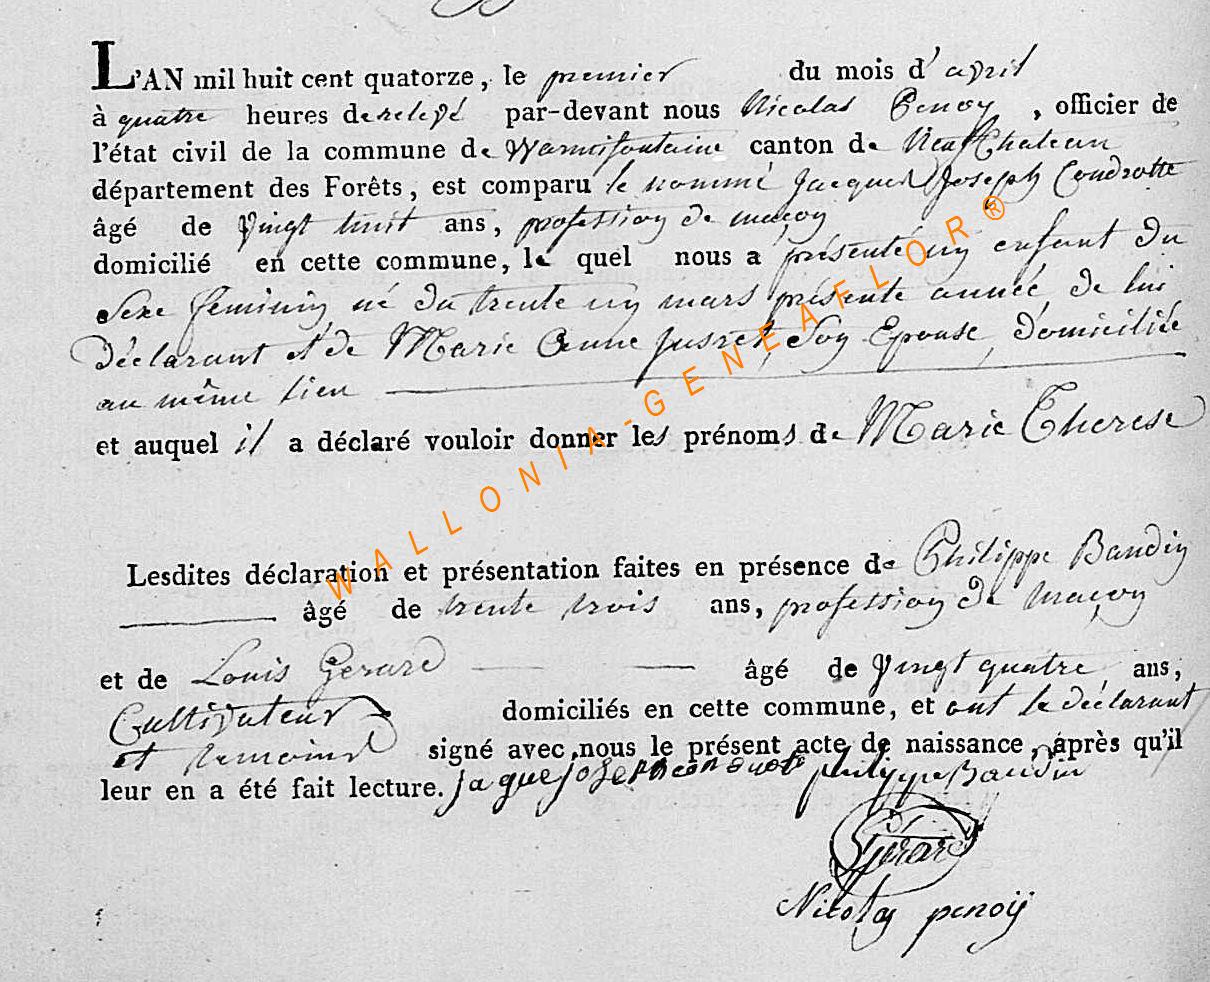 L'AN mil huit cent quatorze, le premier du mois d'avril
à quatre heures de relevé par-devant nous Nicolas Penoy, officier de
l'état civil de la commune de Warmifontaine canton de Neufchateau
département des Forêts, est comparu le nommé Jacques Joseph Condrotte
âgé de vingt huit ans, profession de maçon
domicilié en cette commune, le quel nous a présenté un enfant du
sexe feminin né du trente un mars présente année, de lui
déclarant et de Marie Anne Jusret, son Epouse, domiciliée
au même lieu
et auquel il a déclaré vouloir donner les prénoms de Marie Therese
WALLONIA-GENEAFLOR®
Lesdites déclaration et présentation faites en présence de Philippe Baudin
âgé de trente trois ans, profession de maçon
et de Louis Gerard âgé de vingt quatre ans,
Cultivateur domiciliés en cette commune, et ont le déclarant
et temoins signé avec nous le présent acte de naissance, après qu'il
leur en a été fait lecture. jaque joseph condrote philippe Baudin
Gerard
Nicolas penoÿ